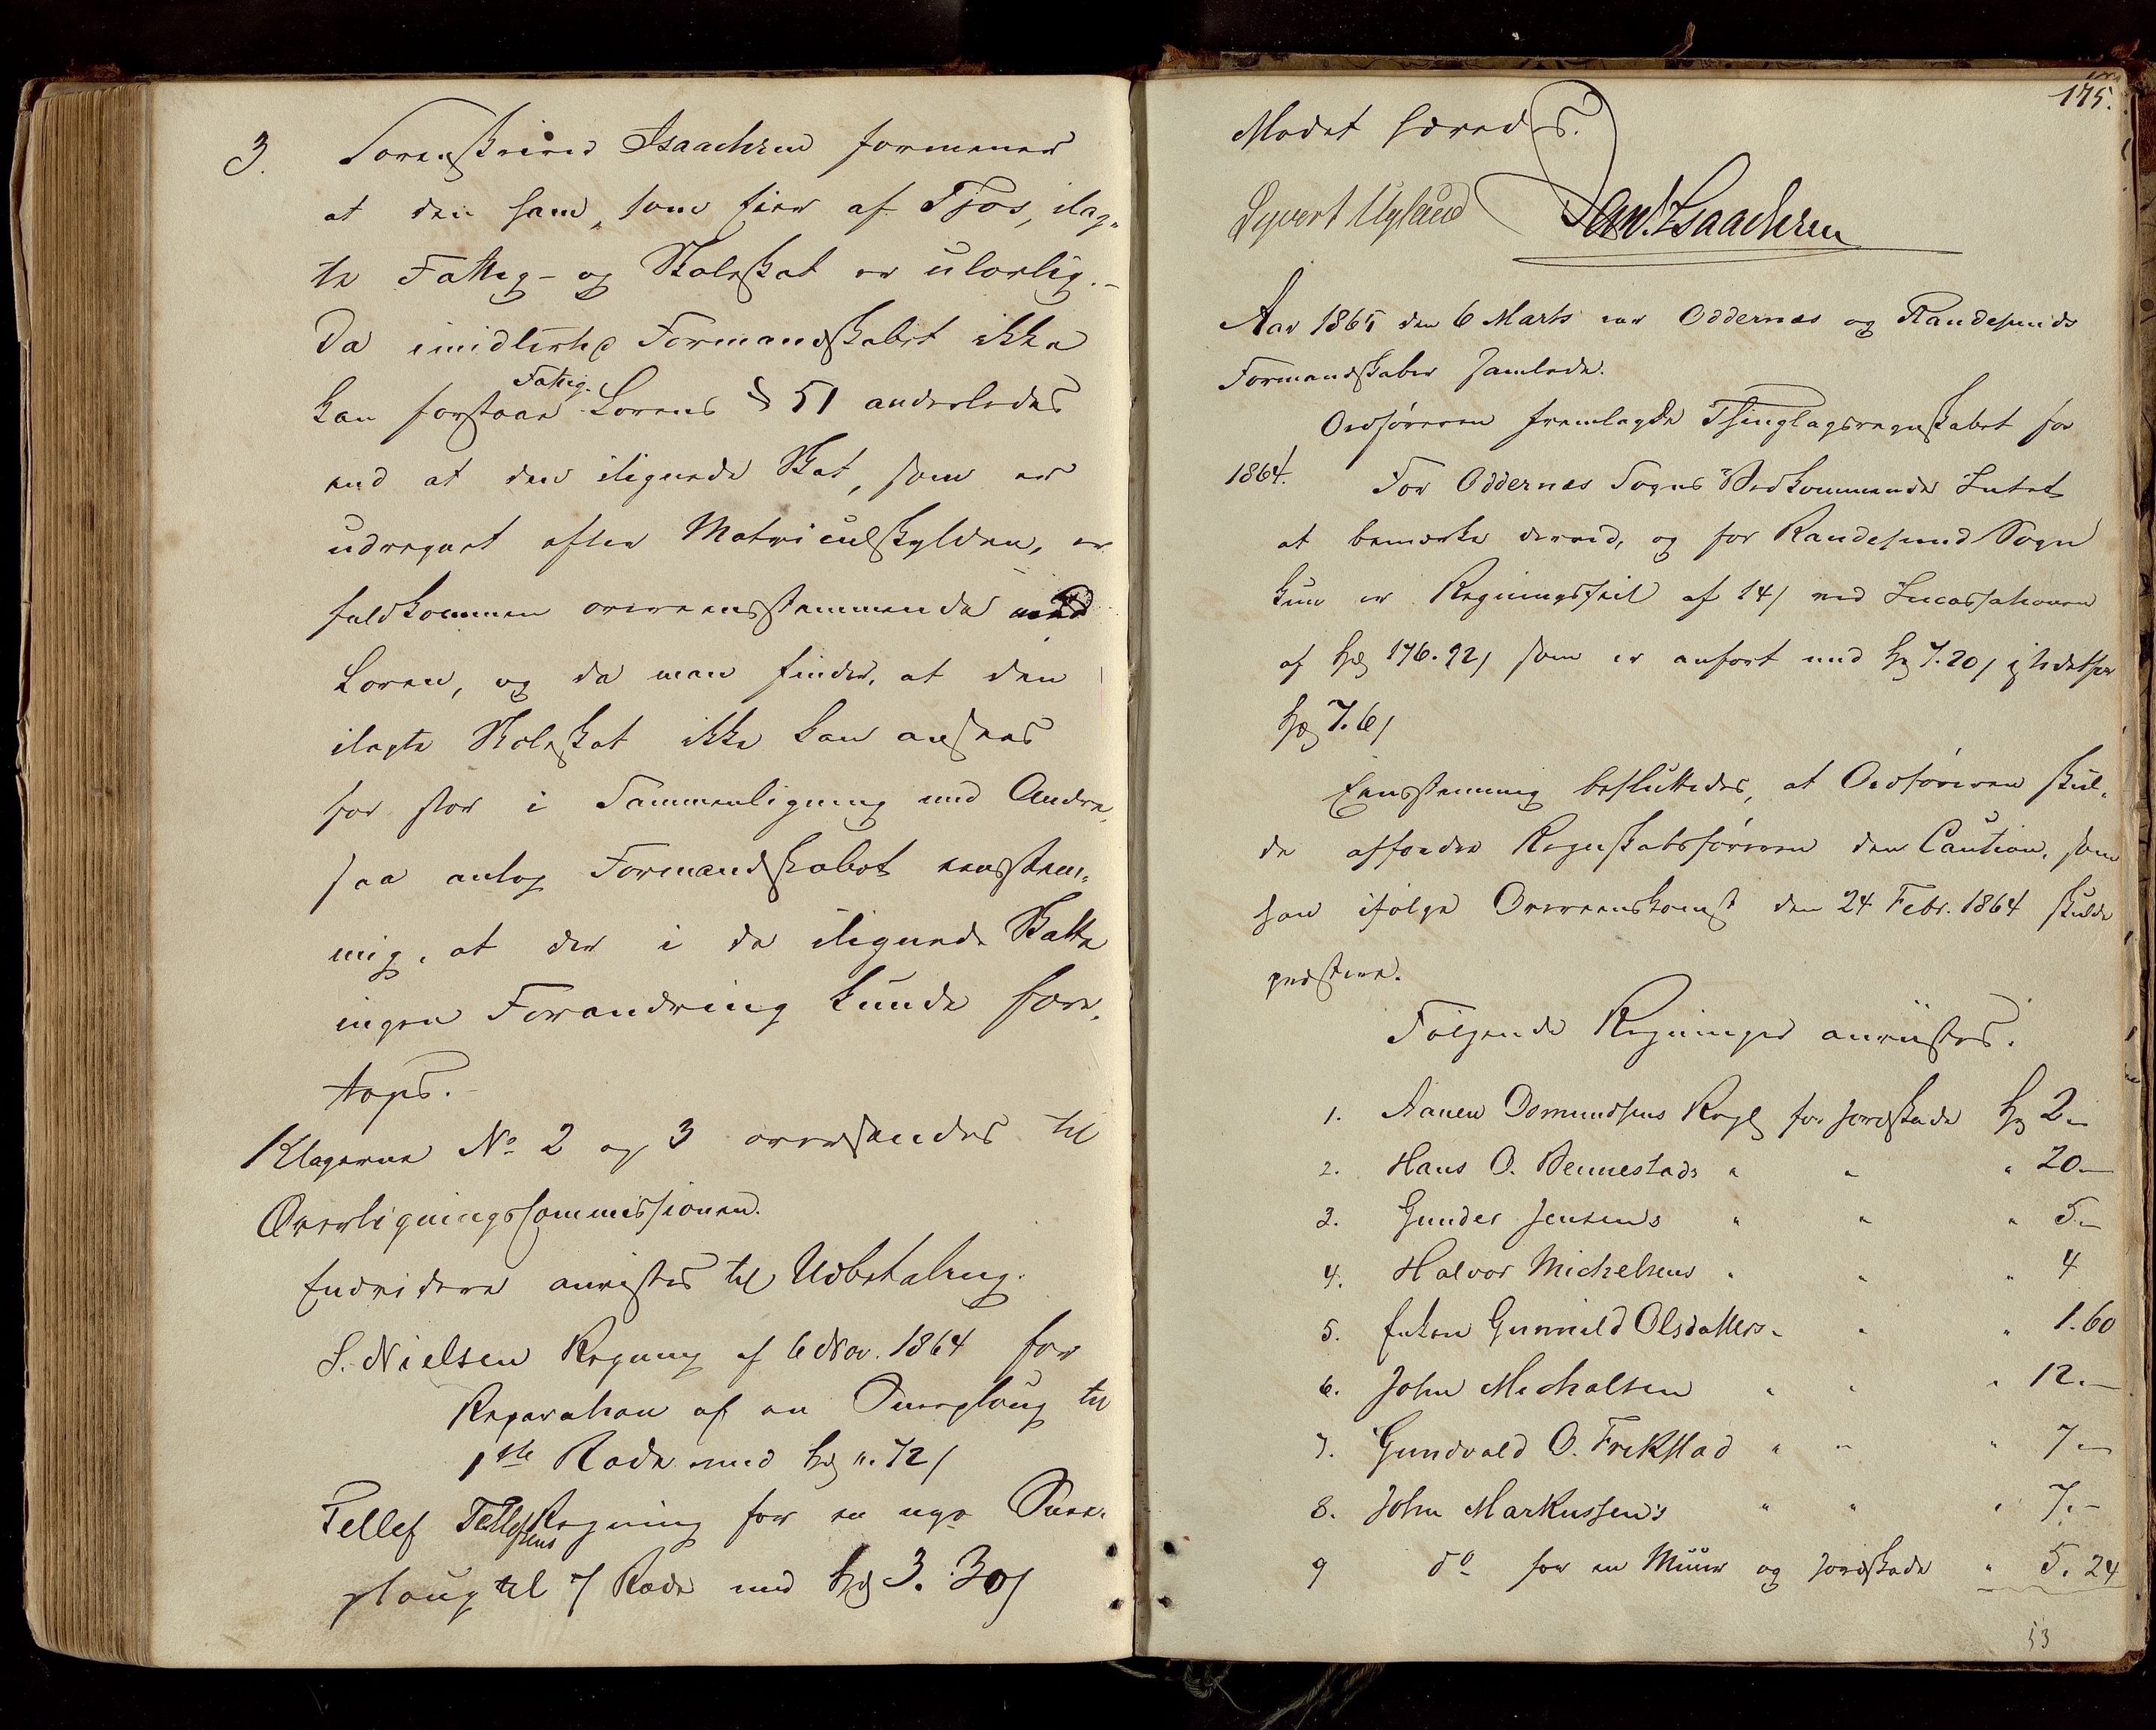 3. Sorenskriver Isaachsen formener
at den ham, som Eier af Tjos, ilag-
te Fattig- og Skoleskat er ulovlig. -
Da imidlertid Formandskabet ikke
kan forstaae Fattig-Lovens § 51 anderledes
end at den ilignede Skat, som er
udregnet efter Matriculskylden, er
fuldkommen overeensstemmende med
Loven, og da man finder, at den
ilagte Skoleskat ikke kan ansees
for stor i Sammenligning med Andre,
saa antog Formandskabet eensstem-
mig, at der i de ilignede Skatte
ingen Forandring kunde fore-
tages. -
Klagerne No 2 og 3 oversendes til
Overligningscommissionen.
Endvidere anvistes til Udbetaling.
S. Nielsen Regning af 6 Nov. 1864 for
Reparation af en Sneeploug til
1ste Rode med Spd ". 72 /
Tellef Tellefsens Regning for en nye Snee-
ploug til 7 Rode med Spd 3. 30 /
175.
Mødet hævedes.
Syvert Ugland Dan. Isaachsen
Aar 1865 den 6 Marts var Oddernes og Randesunds
Formandskaber samlede.
Ordføreren fremlagde Thinglagsregnskabet for
1864. For Oddernes Sogns Vedkommende Intet
at bemærke derved, og for Randesund Sogn
kun er Regningsfeil af 14 / ved Incassationen
af Spd 176. 92 / som er anført med Spd 7. 20 / istedetfor
Spd 7. 6 /
Eensstemmig besluttedes, at Ordføreren skul-
de affordre Regnskabsføreren den Caution, som
han ifølge Overeenskomst den 24 Febr. 1864 skulde
præstere.
Følgende Regninger anviistes:
1. Aanen Osmundsens Regng for Jordskade Spd 2 -
2. Hans O. Bennestads " " " 20. -
3. Gunder Jensens " " " 5. -
4. Halvor Michelsens " " " 4
5. Enken Gunnild Olsdatters " " " 1. 60
6. John Michalsen " " " 12. -
7. Gundvald O. Frikstad " " " 7. -
8. John Markussen's " " " 7. -
9 do for en Muur og Jordskade " 5. 24
53